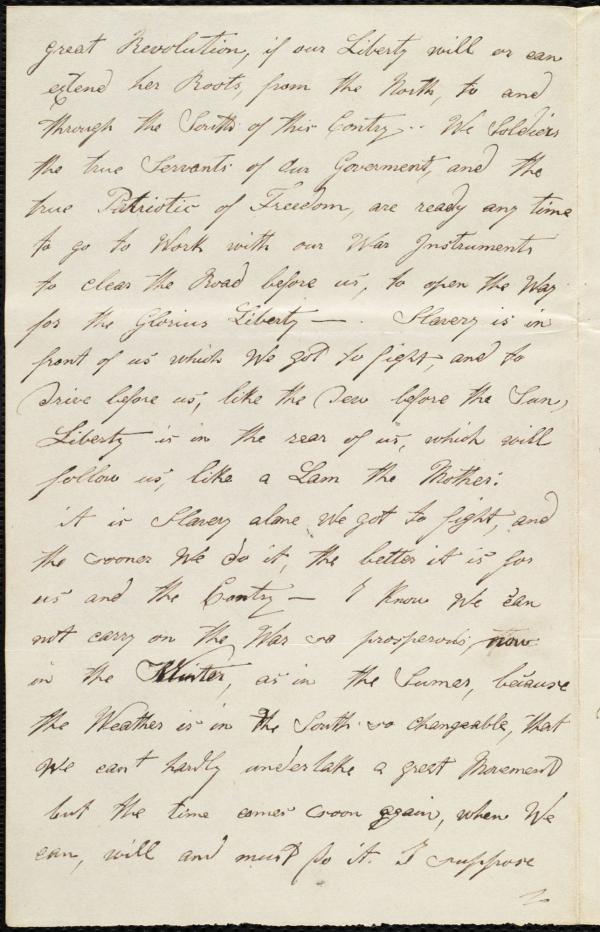 great Revolution, if our Liberty will or can
extend her Roots, from the North, to and
through the South of this Contry. - We Soldiers
the true Servants of our Goverment, and the
true Patriotic of Freedom, are ready any time
to go to Work with our War Instruments
to clear the Road before us, to open the Way
for the Glorius Liberty — . Slavery is in
front of us which We got to fight, and to
Drive before us, like the Dew before the Sun,
Liberty is in the rear of us, which will
follow us, like a Lam the Mother.
it is Slavery alone We got to fight, and
the sooner We do it, the better it is for
us and the Contry — I Know We can
not carry on the War so prosperous now
in the Winter, as in the Sumer, because
the Weather is in the South so changeable, that
We can't hardly undertake a great Movement
but the time comes soon again, when We
can, will and must do it. I suppose